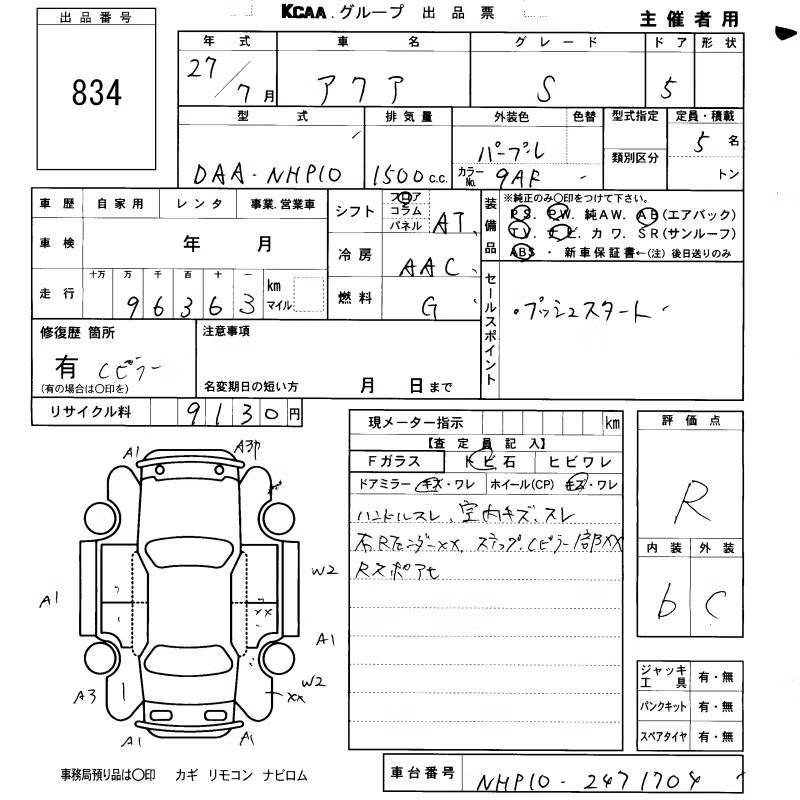 出品番号
834
KCAA.グループ 出品票
主催者用
年式 車名 グレード ドア 形状
27/7月 アクア S 5
型式 排気量 外装色 色替 型式指定 定員・積載
DAA-NHP10 1500c.c. パープル カラーNo. 9AF 類別区分 5名
トン
車歴 自家用 レンタ 事業.営業車
車検 年 月
走行 十万 万 千 百 十 一 km マイル
96363
シフト フロア コラム パネル AT
冷房 AAC
燃料 G
装備品 ※純正のみ〇印をつけて下さい。
PS. PW. 純AW. AB(エアバック)
TV. ナビ. カワ. SR(サンルーフ)
ABS ・ 新車保証書←(注) 後日送りのみ
セールスポイント
・プッシュスタート
修復歴 箇所
有 Cピラー
(有の場合は〇印を)
注意事項
名変期日の短い方 月 日まで
リサイクル料 9130円
現メーター指示 km
【査定員記入】
Fガラス トビ石 ヒビワレ
ドアミラー キズ・ワレ ホイール(CP) キズ・ワレ
ハンドルスレ、室内キズ、スレ
右RフェンダーXX、ステップ、Cピラー1部XX
Rスポアセ
評価点
R
内装 外装
b C
ジャッキ工具 有・無
パンクキット 有・無
スペアタイヤ 有・無
A1 A3
A1 W2 XX
A1
A3 W2 XX
A1 A1
事務局預り品は〇印 カギ リモコン ナビロム
車台番号 NHP10-2471704